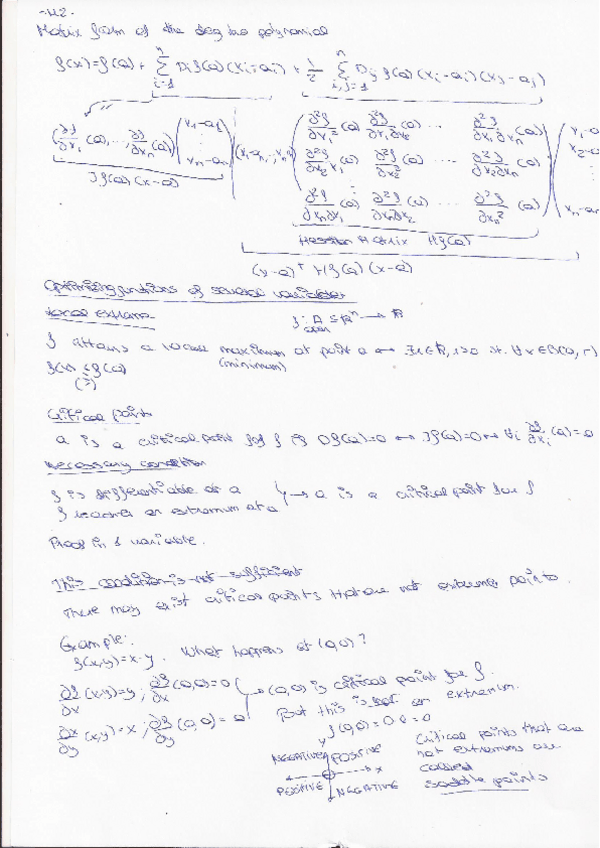 -42-
Matrix form of the deg two polynomial
f(x)=f(a)+ Σ_{i=1}^{n} Dif(a)(xi-ai)+ 1/2 Σ_{i,j=1}^{n} Dij f(a)(xi-ai)(xj-aj)
(∂f/∂x1 (a),..., ∂f/∂xn (a)) (x1-a1 ⋮ xn-an) (x1-a1,..., xn-an) ( ∂²f/∂x1² (a) ∂²f/∂x1∂x2 (a) ... ∂²f/∂x1∂xn (a)
∂²f/∂x2x1 (a) ∂²f/∂x2² (a) ... ∂²f/∂x2∂xn (a)
∂²f/∂xn∂x1 (a) ∂²f/∂xn∂x2 (a) ... ∂²f/∂xn² (a) ) (x1-a x2-a ⋮ xn-an
Jf(a)(x-a)
Hessian Matrix Hf(a)
(x-a)ᵀ Hf(a)(x-a)
Optimizing functions of several variables
Local extrema
f: D ⊆ ℝⁿ → ℝ
open
f attains a local maximum at point a ↔ ∃r∈ℝ, r>0 st. ∀x∈B(a,r)
(minimum)
f(x) ≤ f(a)
(≥)
Critical point
a is a critical point for f if Df(a)=0 ↔ Jf(a)=0 ↔ ∀i ∂f/∂xi (a)=0
Necessary condition
f is differentiable at a
f reaches an extremum at a } → a is a critical point for f
Proof in 1 variable.
This condition is not sufficient
There may exist critical points that are not extreme points.
Example:
f(x,y)=x·y. What happens at (0,0)?
∂f/∂x (x,y)=y; ∂f/∂x (0,0)=0
∂f/∂y (x,y)=x; ∂f/∂y (0,0)=0 } → (0,0) is critical point for f.
But this is not an extremum.
f(0,0)=0·0=0
y
NEGATIVE POSITIVE
x
POSITIVE NEGATIVE
Critical points that are
not extremums are
called
saddle points